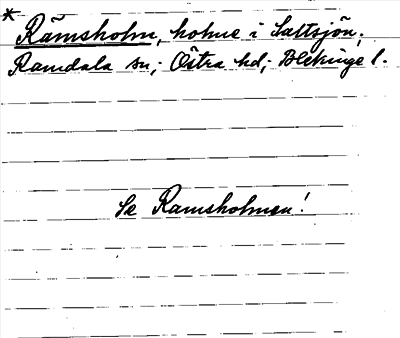 * Rämsholm, holme i Saltsjön,
Ramdala sn; Östra hd; Blekinge l.
Se Ramsholmen!